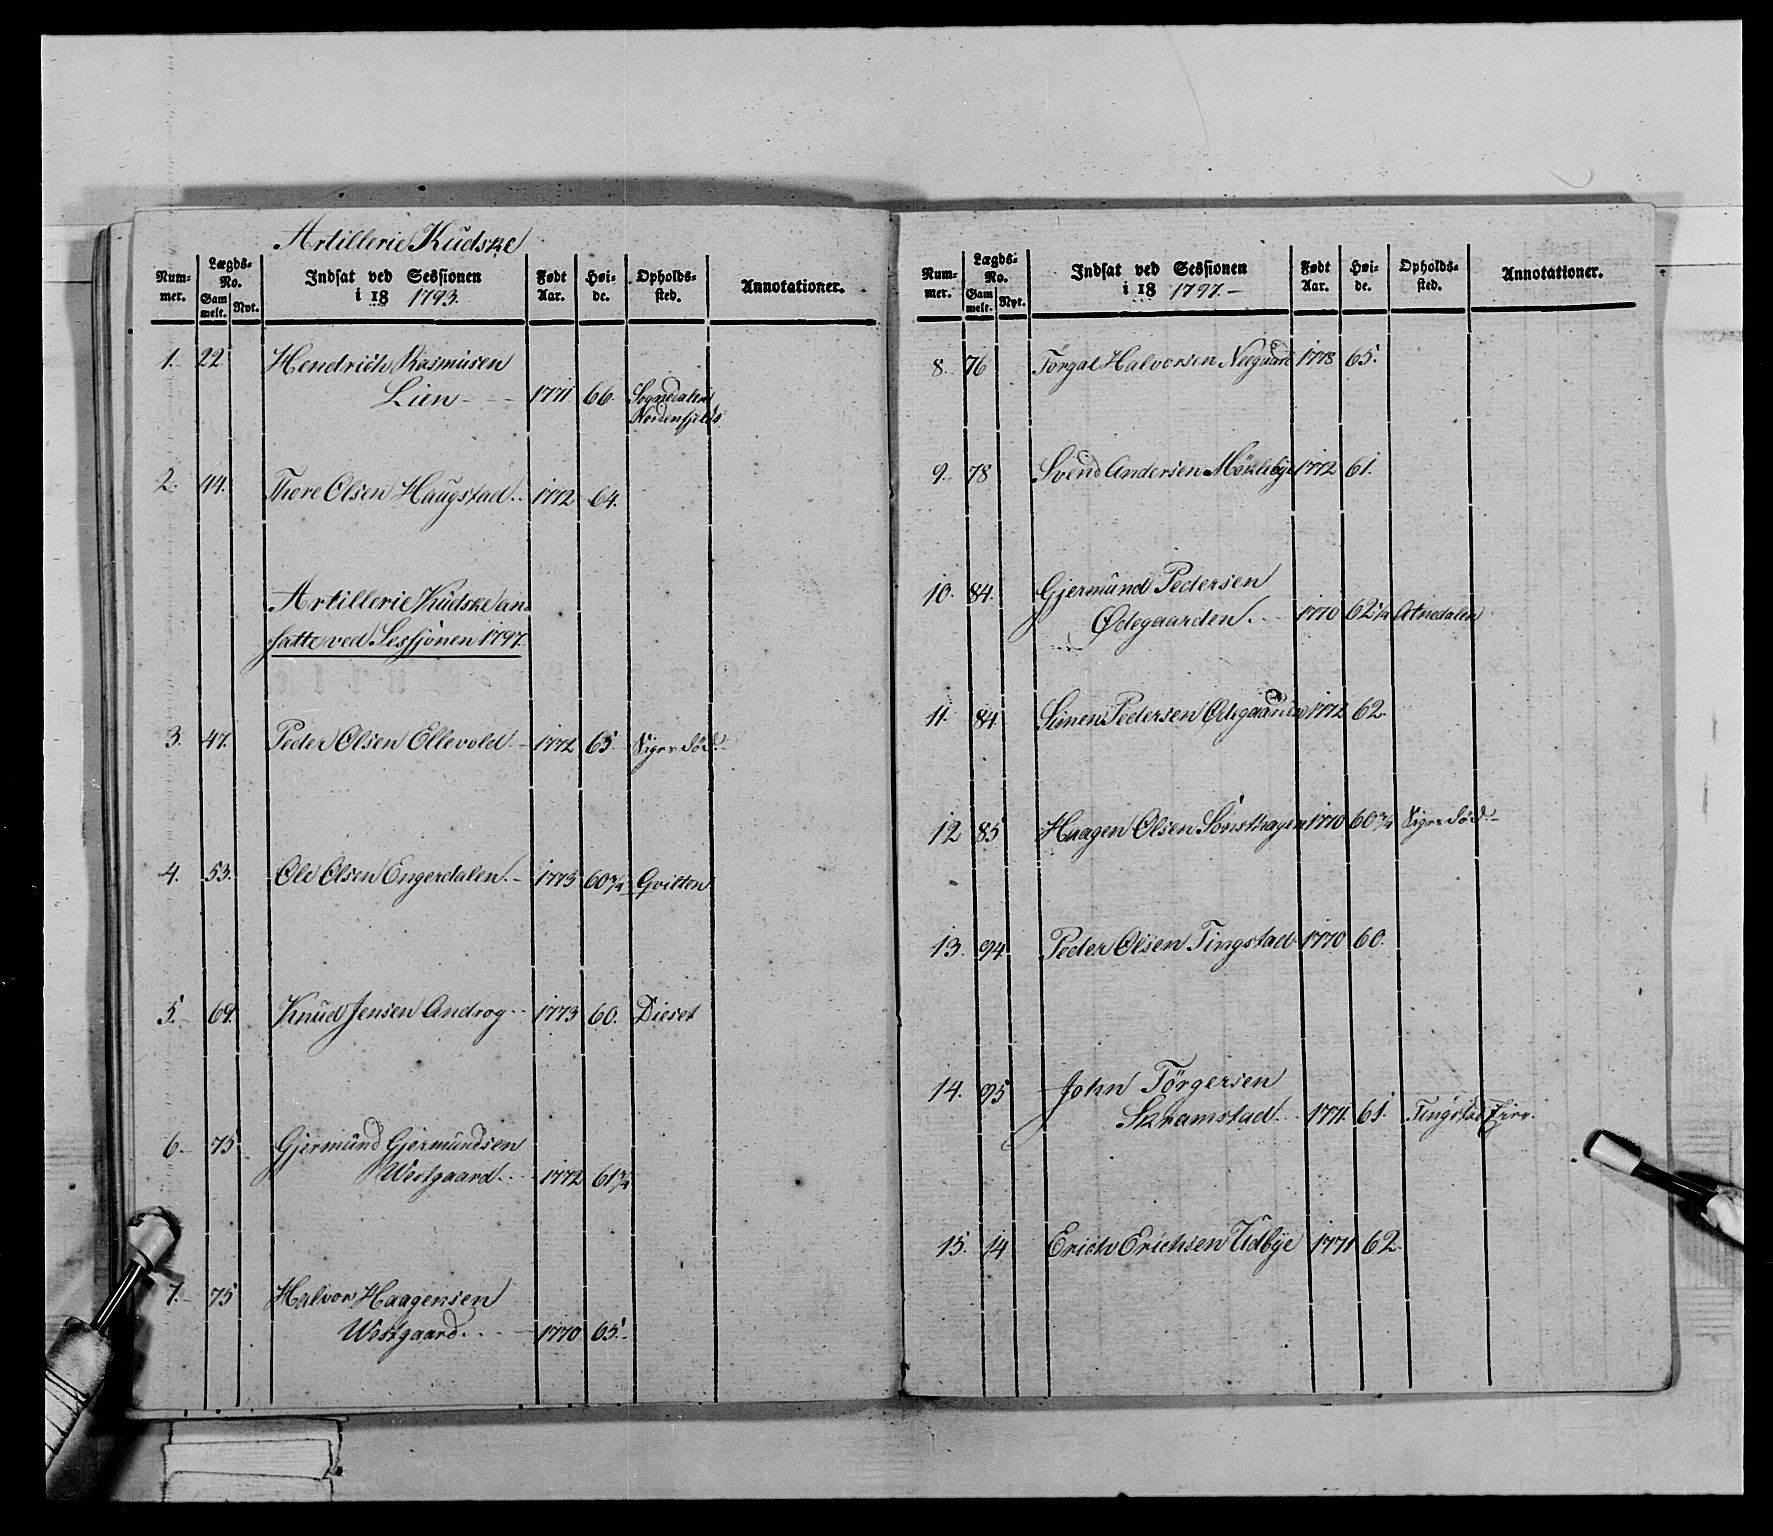 Artillerie Kudske
Num-
mer.
Lægds-
No.
Gam
melt.
Nyt.
Indsat ved Sessionen
i 18 1793.
Født
Aar.
Høi-
de.
Opholds-
sted.
Annotationer.
1. 22 Hendrich Rasmusen
Lien 1771 66. Sognedalen
Nordenfjelds
2. 44. Thore Olsen Haugstad. 1772 64.
Artillerie Kudske an-
satte ved Sessjonen 1797.
3. 47. Peder Olsen Ellevold. 1772 65. Siges död.
4. 53. Ole Olsen Engerdalen. 1773 60 3/4 Qvilten
5. 69. Knud Jensen Androg 1773 60. Dieset
6. 75 Gjermund Gjermundsen
Westgaard. 1772 61 3/4
7. 75 Halvor Haagensen
Westgaard. 1770 65.
Num-
mer.
Lægds-
No.
Gam
melt.
Nyt.
Indsat ved Sessionen
i 18 1797.
Født
Aar.
Høi-
de.
Opholds-
sted.
Annotationer.
8. 76 Halvorsen Neegaard 1778 65.
9. 78 Svend Andersen Möklebye 1772 61.
10. 84. Gjermund Pedersen
Ødegaarden. 1770 62 1/4 Atnedalen
11. 84. Simen Pedersen Ødegaarden 1772 62.
12 85 Haagen Olsen Sönsthagen 1770 60 3/4 Siges död.
13. 94. Peder Olsen Tingstad 1770 60.
14. 95 John Törgersen
Skramstad. 1771. 61. Tingstad
15. 14 Erich Erichsen Udbye 1771 62.